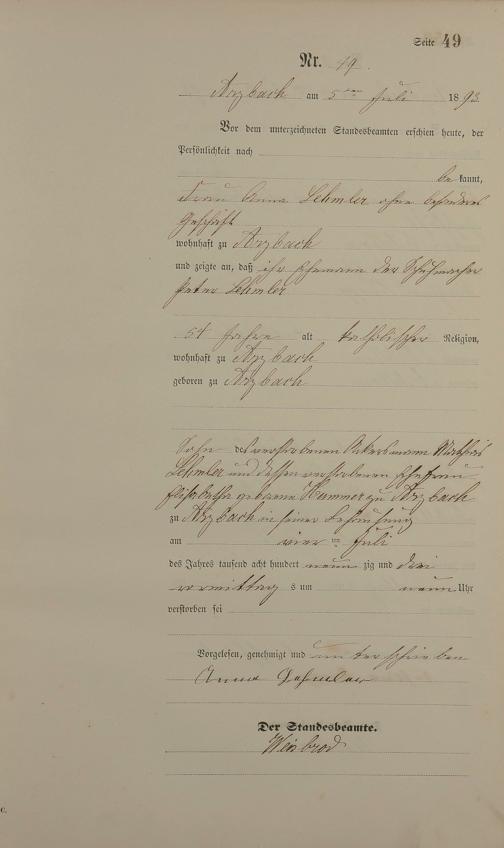 Seite 49
Nr. 49.
Arzbach am 5ten Juli 1893
Vor dem unterzeichneten Standesbeamten erschien heute, der
Persönlichkeit nach
bekannt,
Frau Anna Lehmler ohne besonderes
Geschäft
wohnhaft zu Arzbach
und zeigte an, daß ihr Ehemann der Schuhmacher
Peter Lehmler
54 Jahre alt katholischer Religion,
wohnhaft zu Arzbach
geboren zu Arzbach
Sohn des verstorbenen Ackersmann Mathias
Lehmler und dessen verstorbenen Ehefrau
Elisabetha geborene Hammer zu Arzbach
zu Arzbach in seiner Behausung
am vier ten Juli
des Jahres tausend acht hundert neunzig und drei
vormittags um neun Uhr
verstorben sei
Vorgelesen, genehmigt und unterschrieben
Anna Lehmler
Der Standesbeamte.
Weisbrod
c.